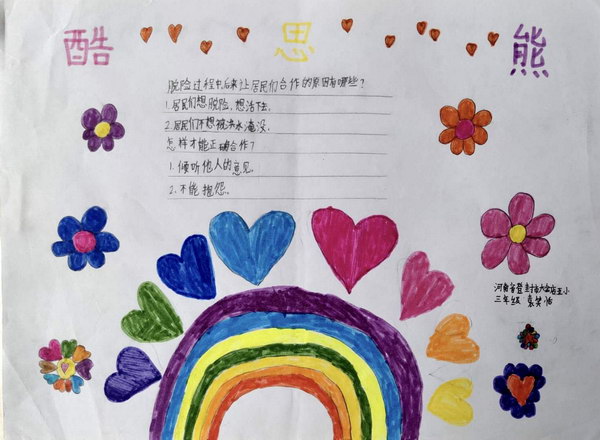 酷思熊
脱险过程中后来让居民们合作的原因有哪些?
1.居民们想脱险,想活下去。
2.居民们不想被洪水淹没。
怎样才能正确合作?
1.倾听他人的意见。
2.不能抱怨。
河南省登封市大金店王小
三年级 袁梦怡